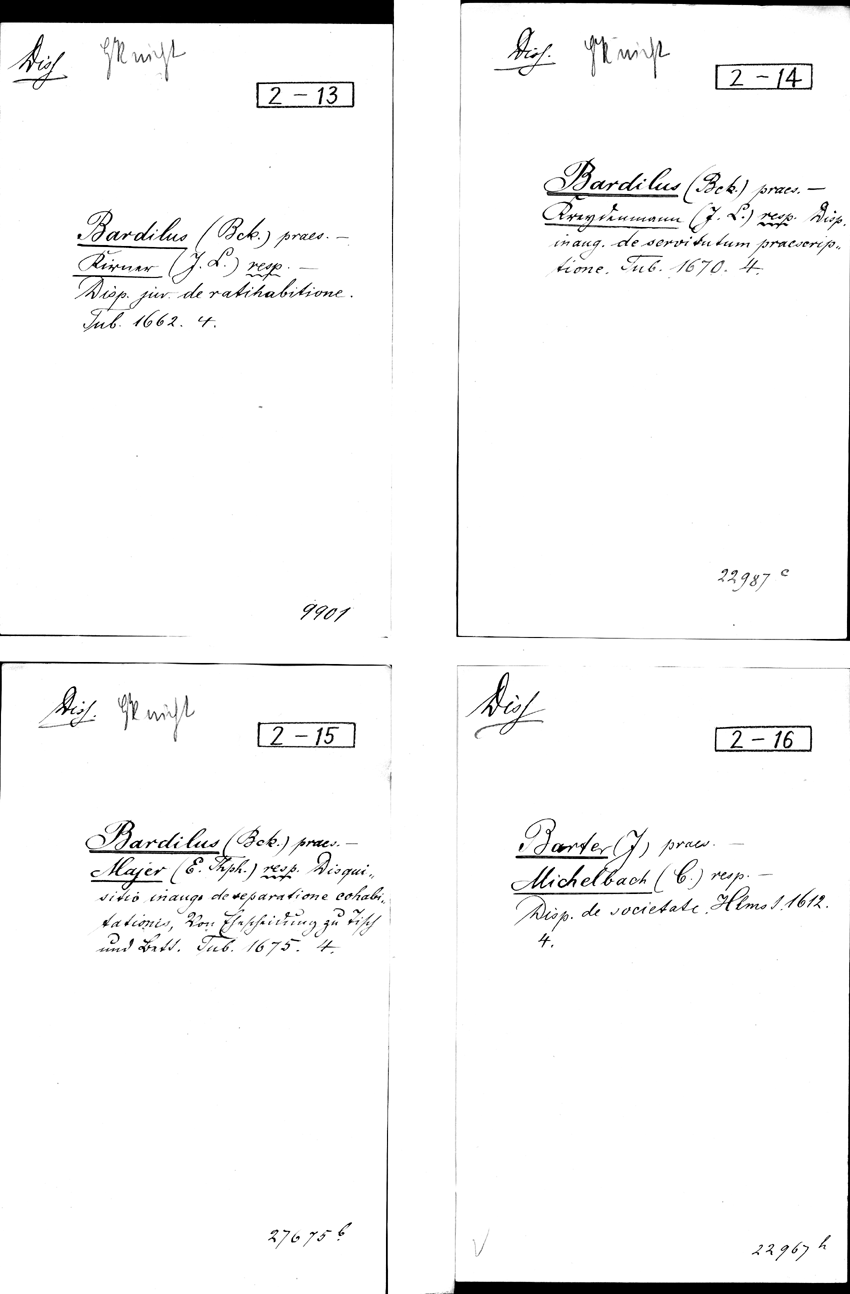 Diss GK nicht
2 – 13
Bardilus (Bck.) praes. —
Kirner (J. L.) resp. —
Disp. jur. de ratihabitione.
Tub. 1662. 4.
9901
Diss. GK nicht
2 – 14
Bardilus (Bck.) praes. —
Kreydenmann (J. L.) resp. Disp.
inaug. de servitutum praescrip-
tione. Tub. 1670. 4.
22987 c
Diss. GK nicht
2 – 15
Bardilus (Bck.) praes. —
Majer (E. Thph.) resp. Disqui-
sitio inaug. de separatione cohabi-
tationis, Von Ehescheidung zu Tisch
und Bett. Tub. 1675. 4.
27675 b
Diss
2 – 16
Barter (J) praes. —
Michelbach (C.) resp. —
Disp. de societate. Hlmst. 1612.
4.
22967 h